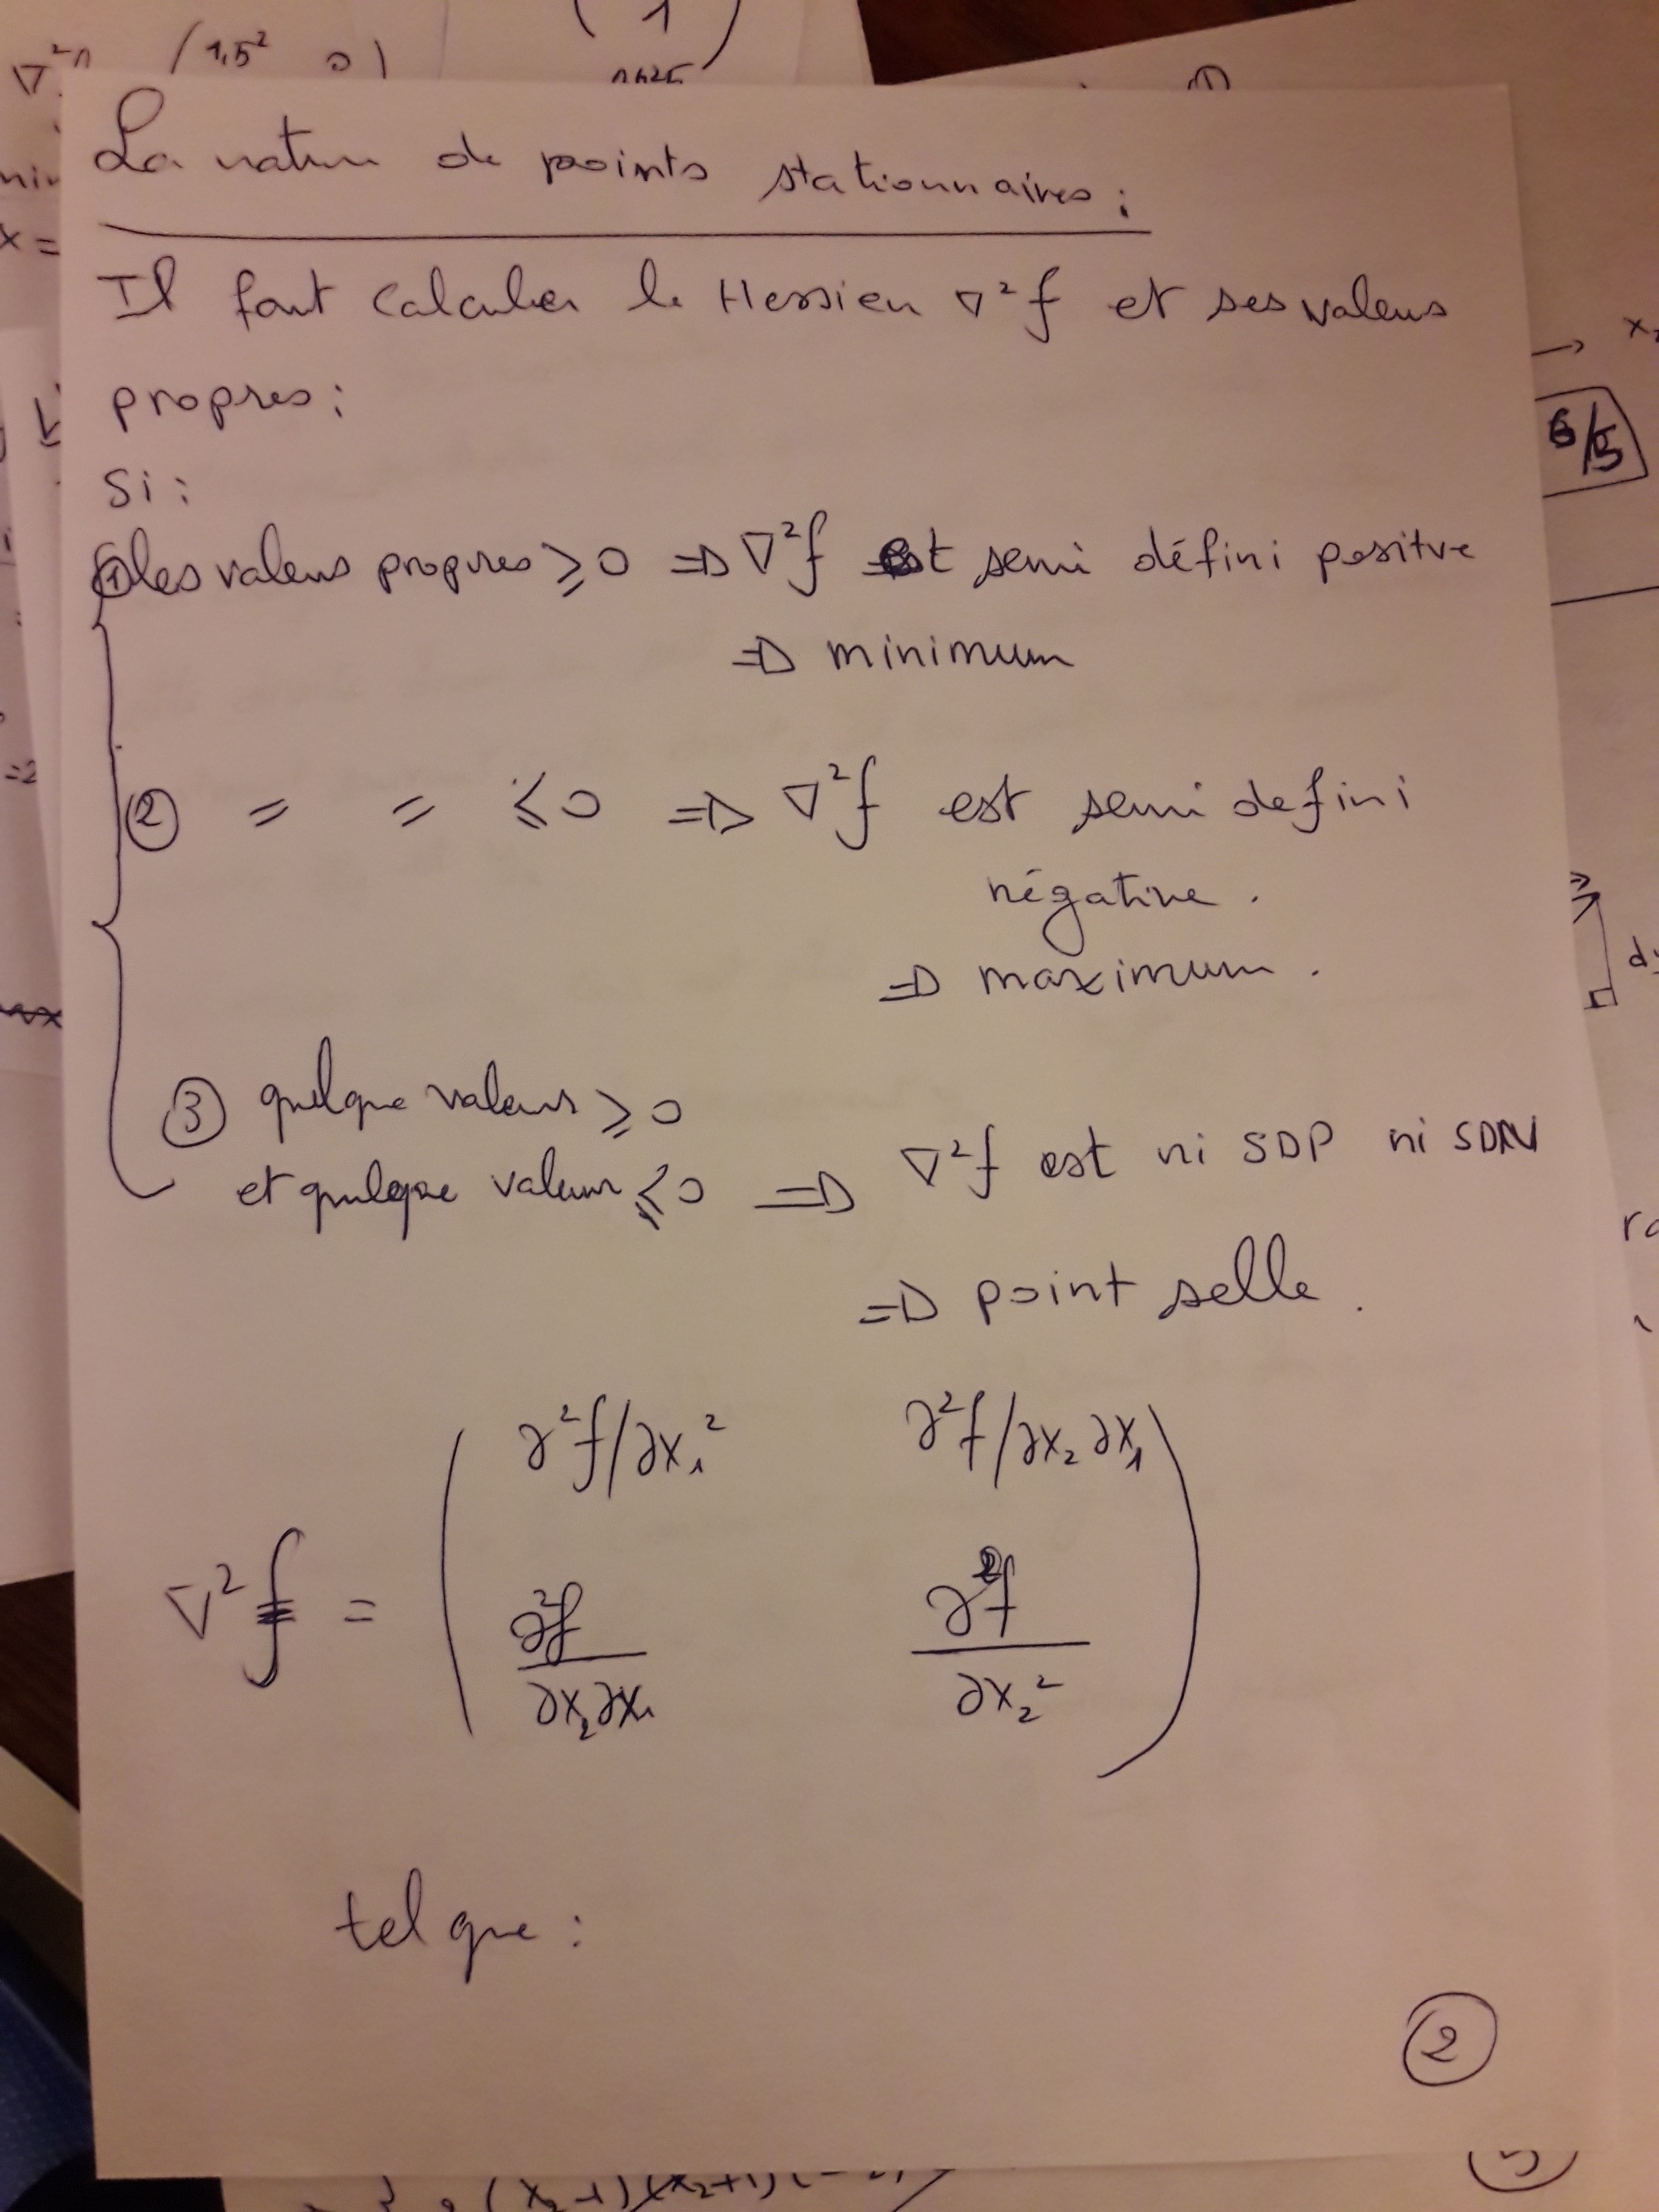 La nature de points stationnaires :
Il faut calculer le Hessien ∇²f et ses valeurs
propres :
Si :
① les valeurs propres ≥ 0 ⇒ ∇²f est semi défini positive
⇒ minimum
② = = ≤ 0 ⇒ ∇²f est semi defini
négative .
⇒ maximum .
③ quelque valeurs ≥ 0
et quelque valeurs ≤ 0 ⇒ ∇²f est ni SDP ni SDN
⇒ point selle .
∇²f = ( ∂²f/∂x₁² ∂²f/∂x₂∂x₁
∂²f/∂x₂∂x₁ ∂²f/∂x₂² )
tel que :
②
6/5